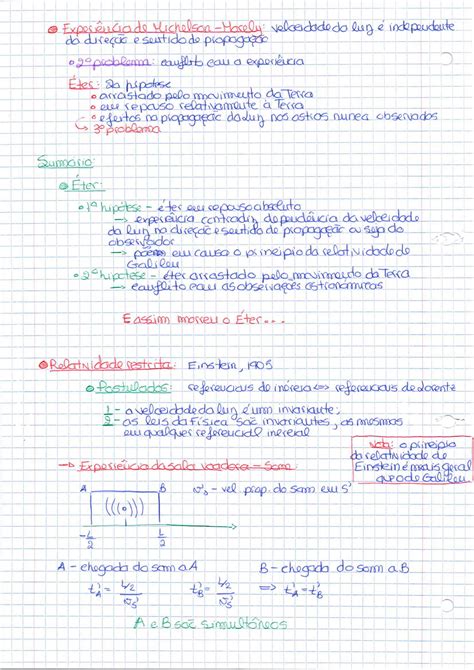 Experiência de Michelson-Morely: velocidade da luz é independente
da direção e sentido de propagação
2º problema: conflito com a experiência
Éter: 2a hipótese
arrastado pelo movimento da Terra
em repouso relativamente à Terra
efeitos na propagação da luz nos astros nunca observados
↳ 3º problema
Sumário:
Éter:
1ª hipótese - éter em repouso absoluto
→ experiência contradiz dependência da velocidade
da luz na direção e sentido de propagação ou seja do
observador
→ em causa o princípio da relatividade de
Galileu
2ª hipótese - éter arrastado pelo movimento da Terra
→ conflito com as observações astronómicas
E assim morreu o Éter...
Relatividade restrita: Einstein, 1905
Postulados: referenciais de inércia ⇔ referenciais de Lorente
1 - a velocidade da luz é um invariante;
2 - as leis da Física são invariantes, as mesmas
em qualquer referencial inercial
Nota: o princípio
da relatividade de
Einstein é mais geral
que o de Galileu
→ Experiência da sala voadora - Some
A B v's - vel prop. do som em S'
(((o)))
-L/2 L/2
A - chegada do som a A B - chegada do som a B
t'A = L/2 / v's t'B = L/2 / v's ⇒ t'A = t'B
A e B são simultâneos